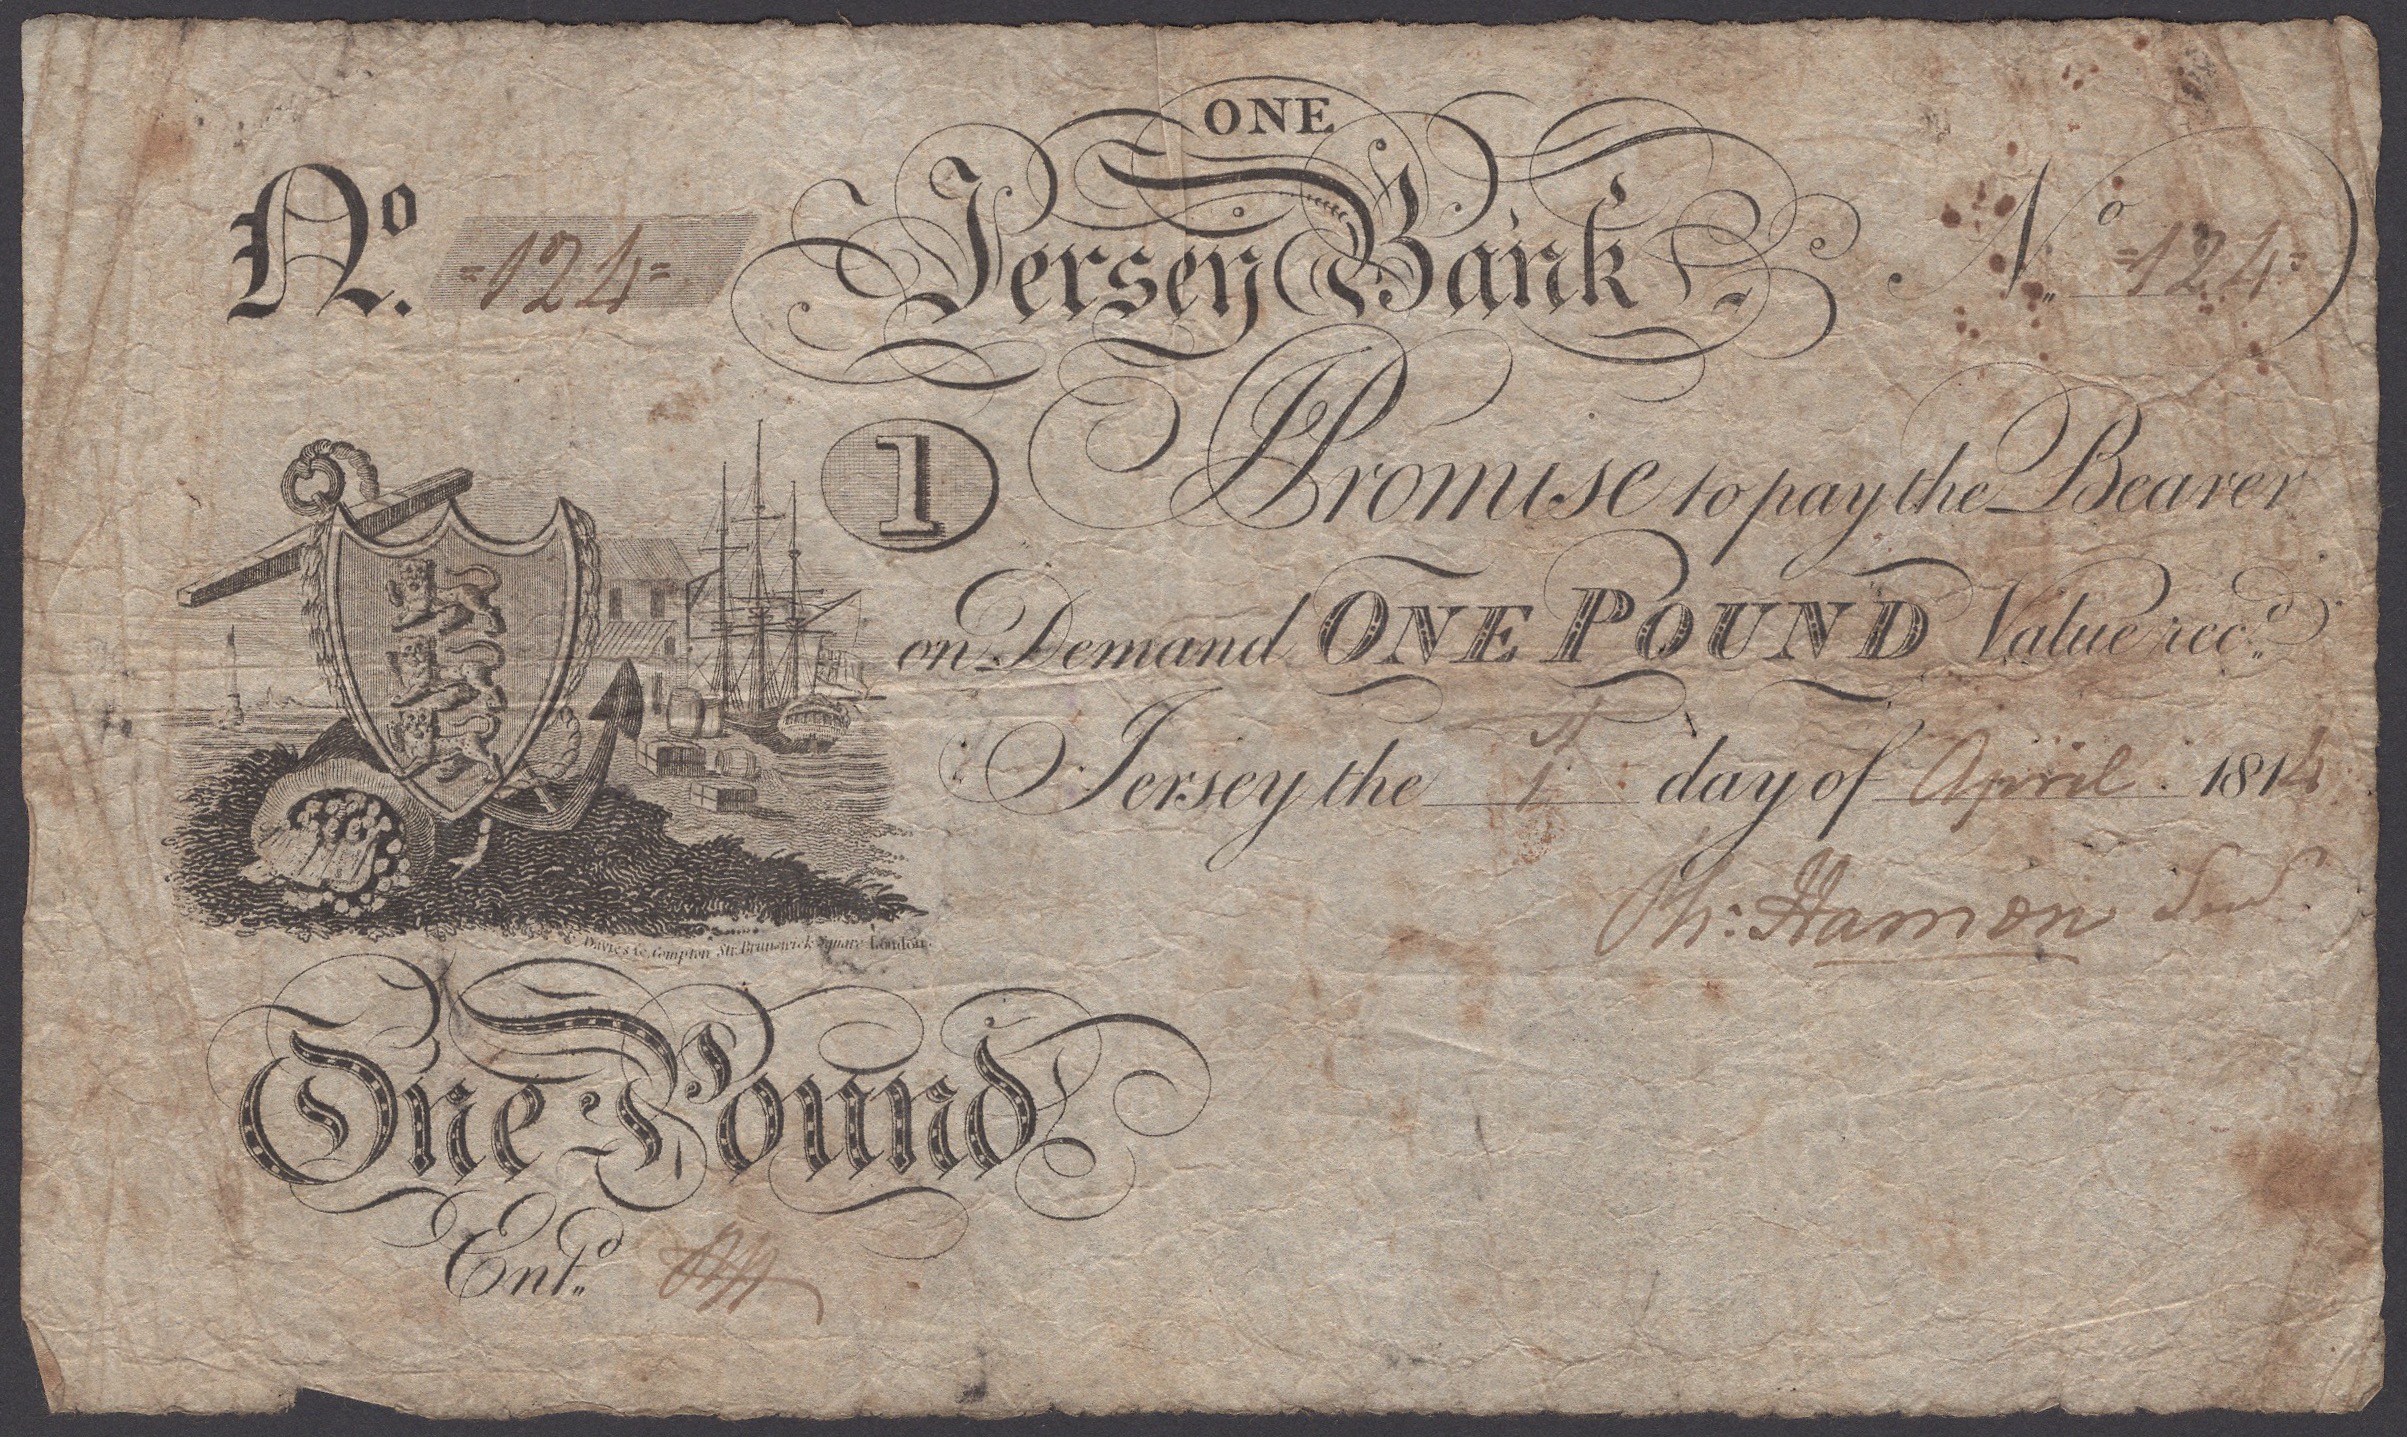 ONE
No. =124= Jersey Bank No. =124=
1 I Promise to pay the Bearer
on Demand ONE POUND Value recd.
Jersey the 1st day of April 1814
Ph: Hamon Senr
Davies & Co. Compton Str. Brunswick Square London.
One Pound
Entd.